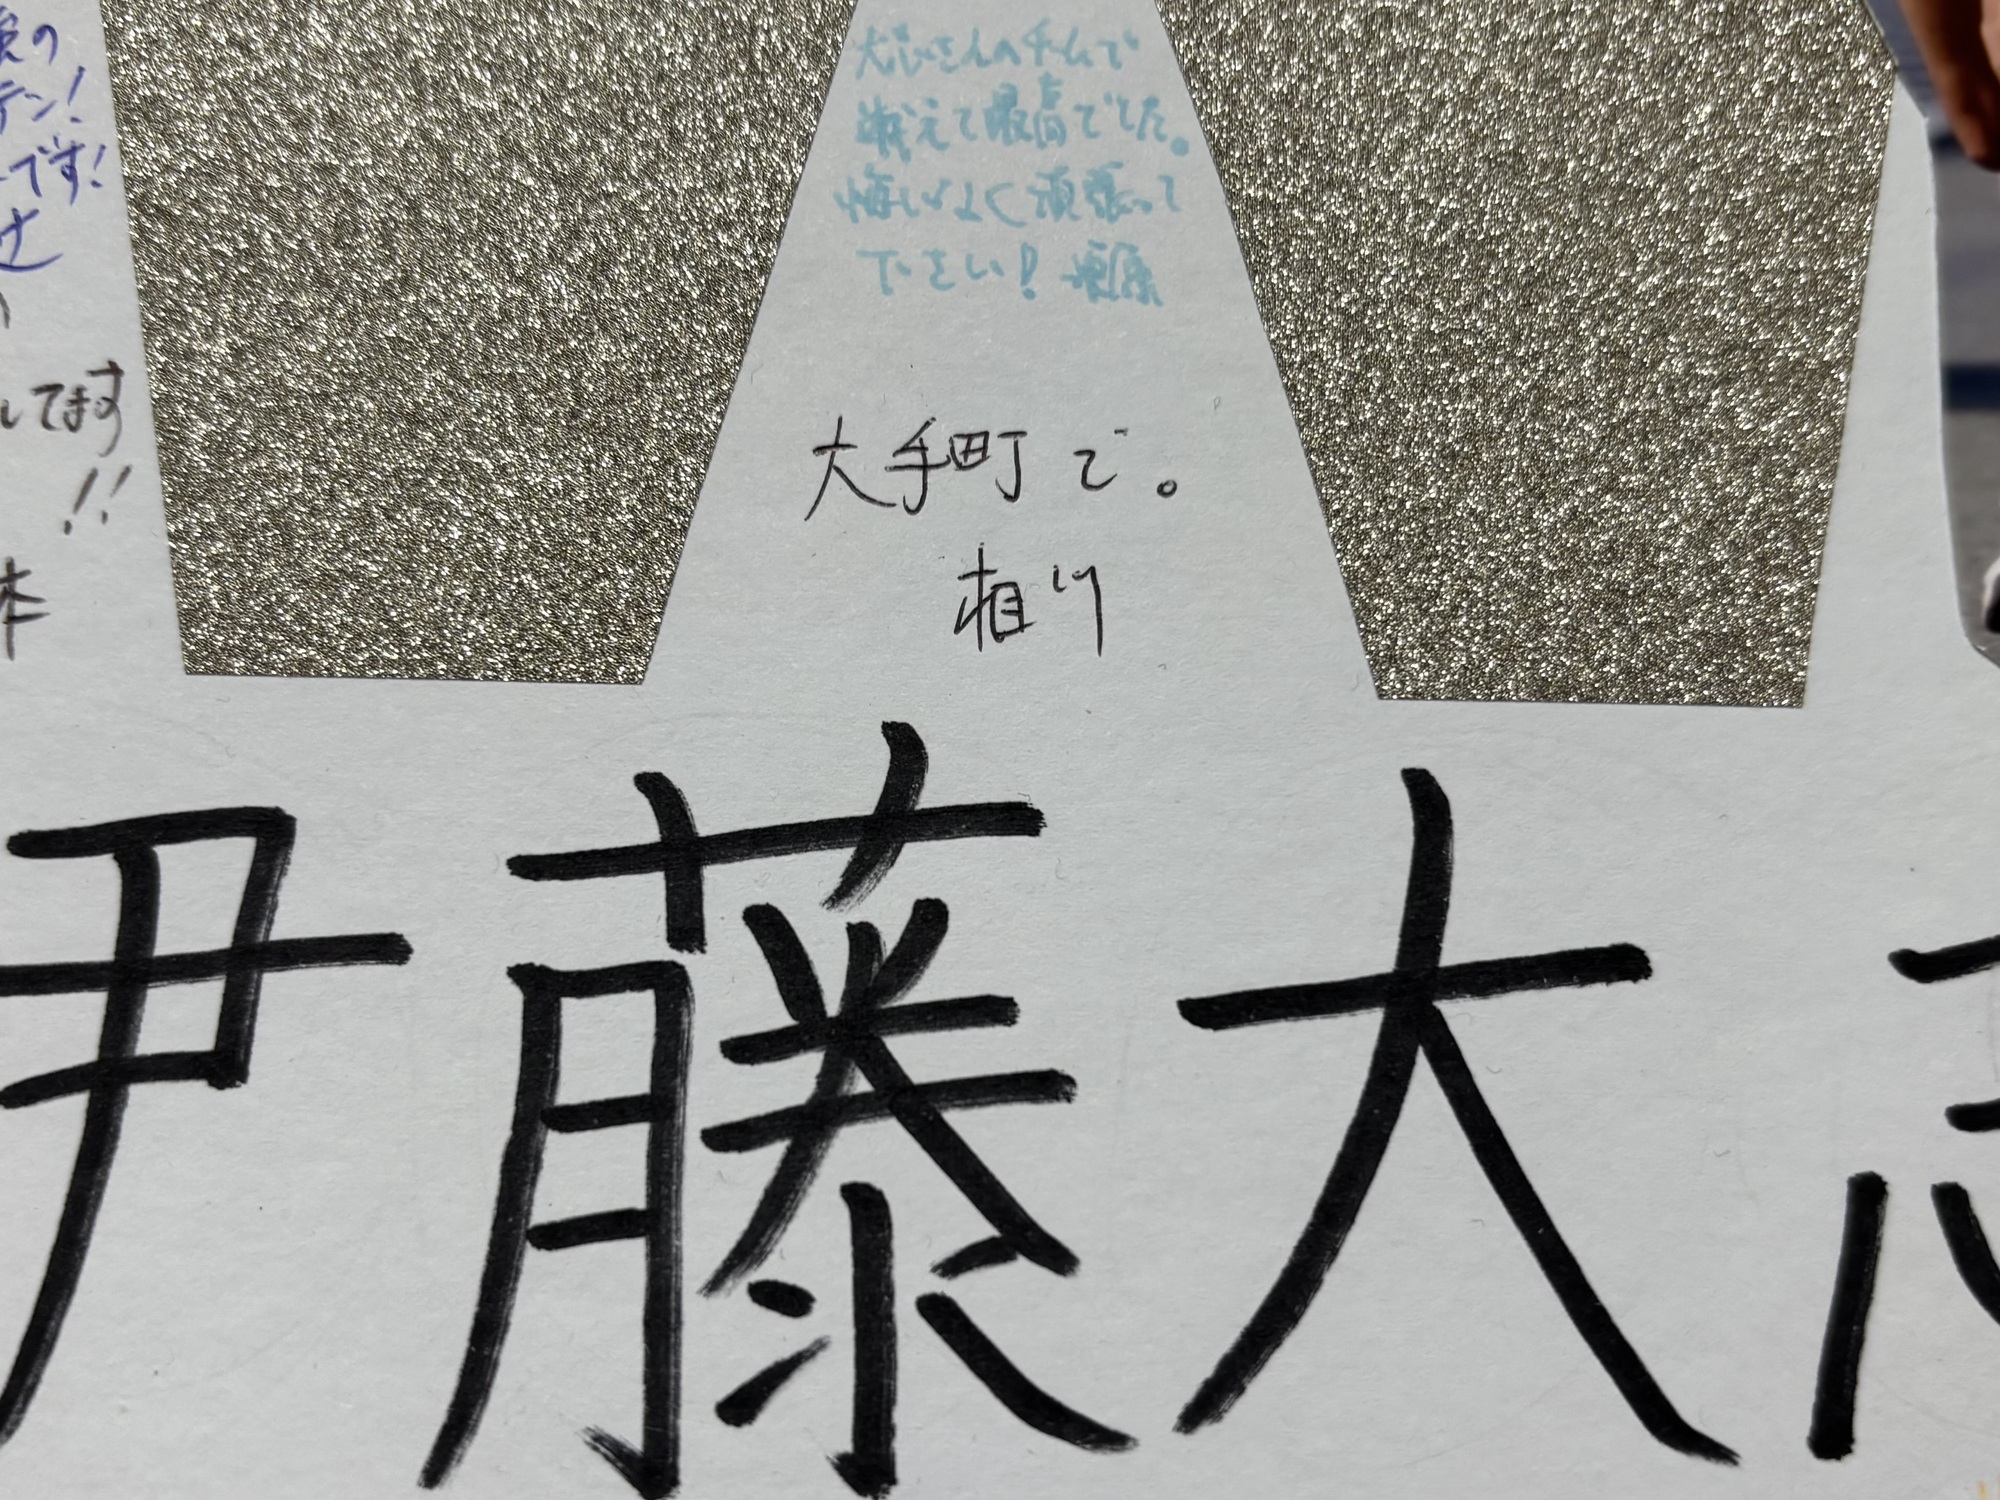 の
テン!
です!
辻
してます
!!
本
大志さんのチームで
戦えて最高でした。
悔いなく頑張って
下さい!
大手町で。
相川
伊藤大志